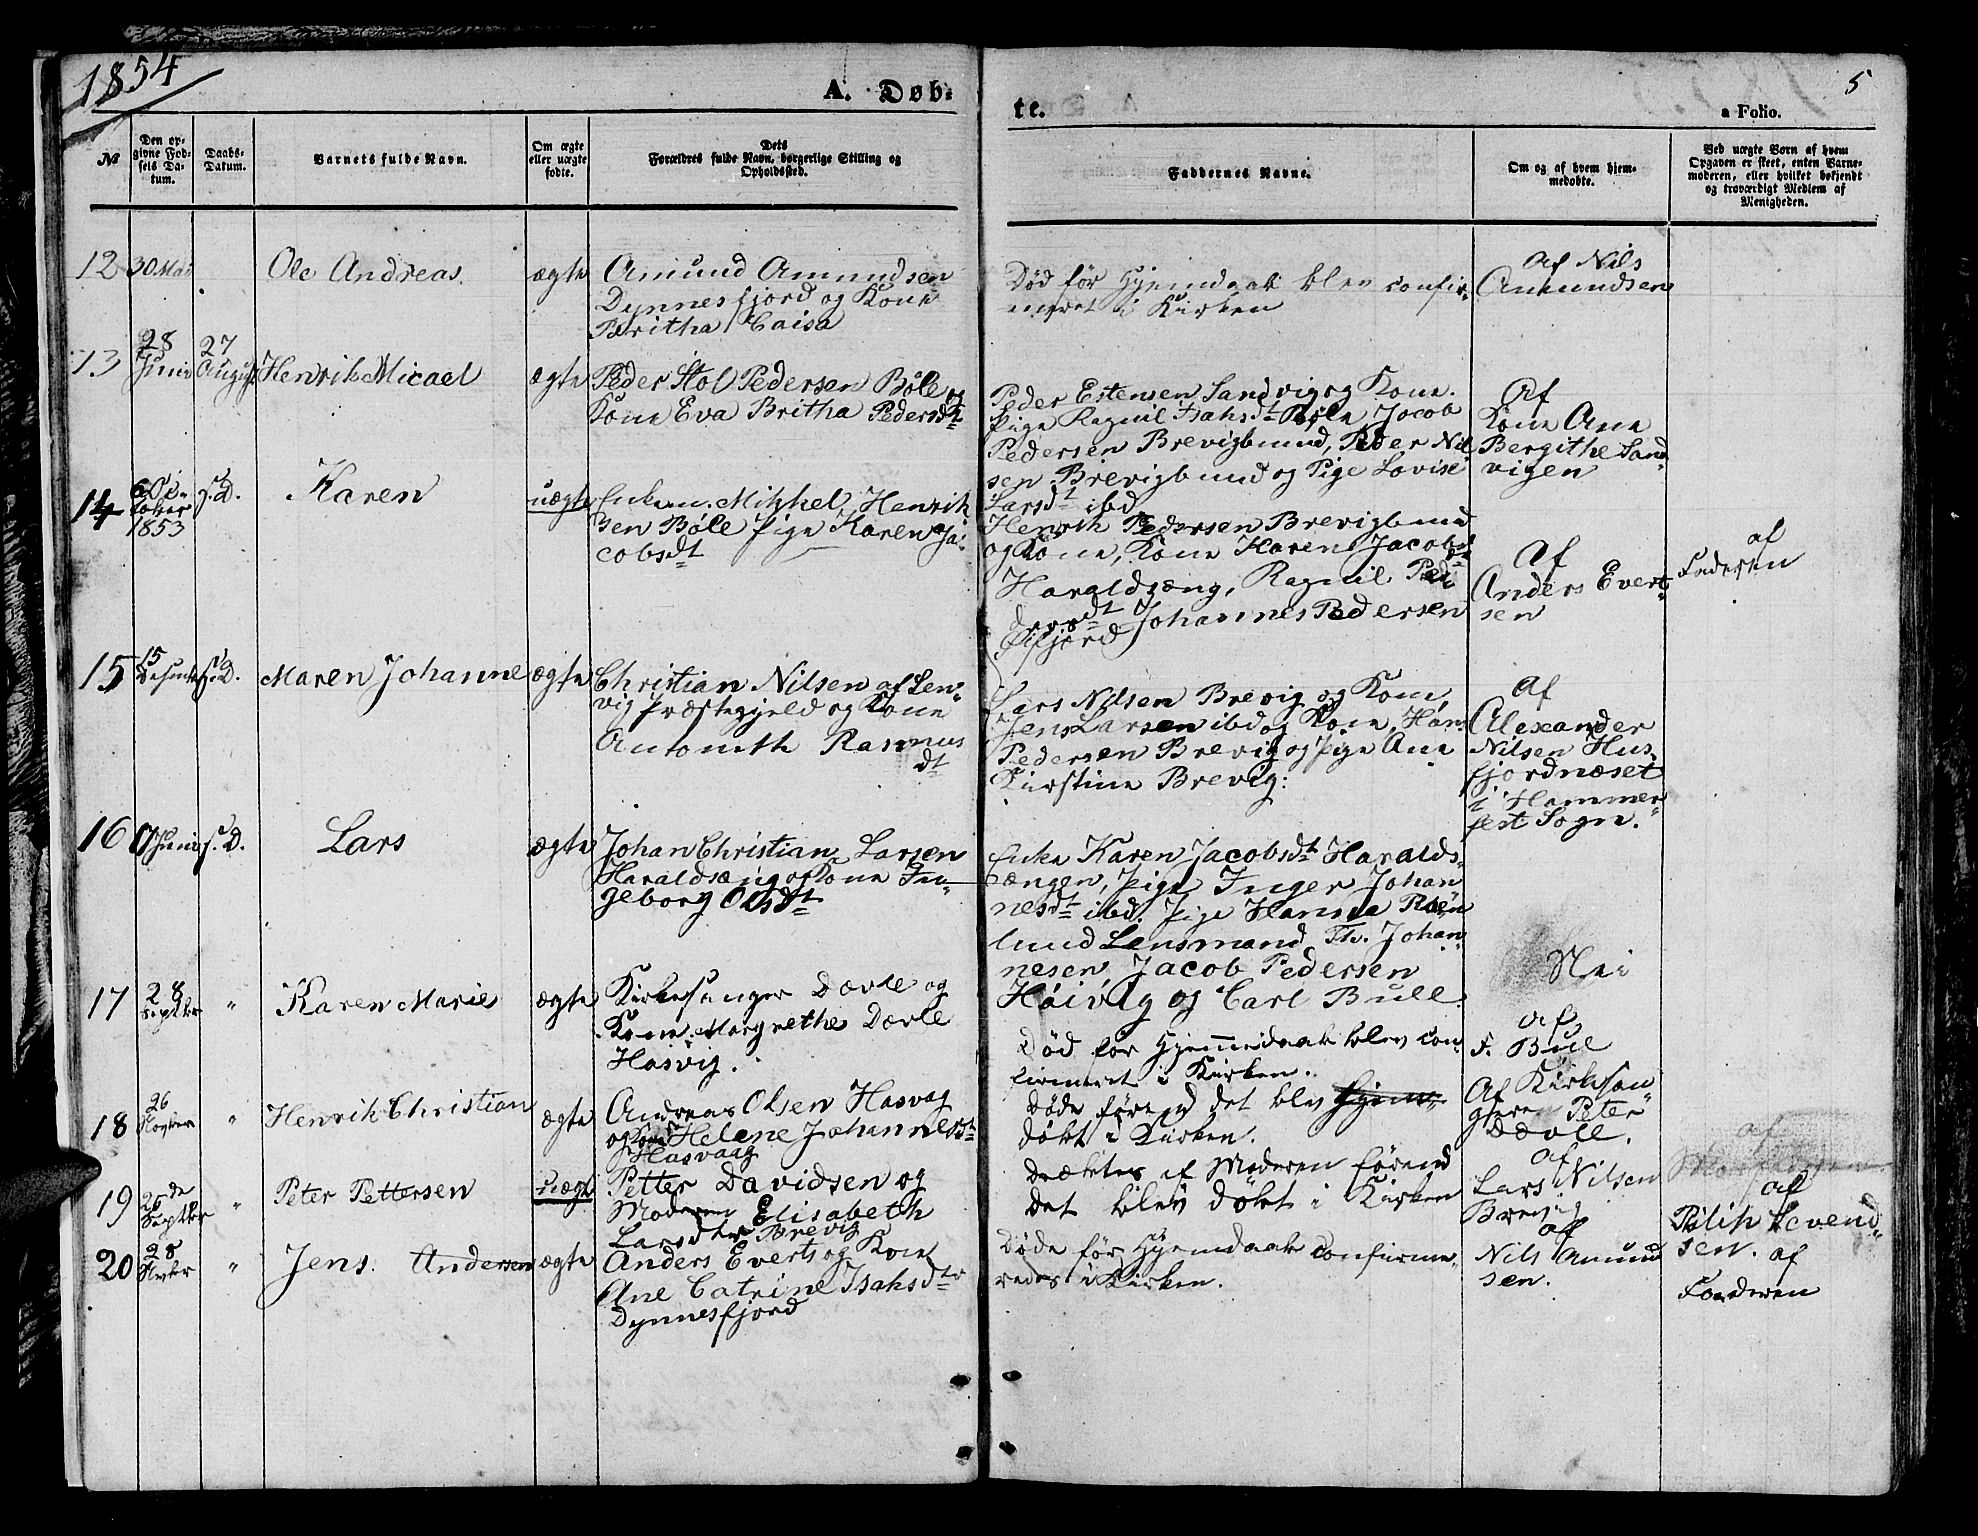 1854
A. Døb-
te.
5
a Folio.
№
Den op-
givne Fød-
sels Da-
tum.
Daabs-
Datum.
Barnets fulde Navn.
Om ægte
eller uægte
fødte.
Dets
Forældres fulde Navn, borgerlige Stilling og
Opholdssted.
Faddernes Navne.
Om og af hvem hjem-
medøbte.
Ved uægte Børn af hvem
Opgaven er skeet, enten Barne-
moderen, eller hvilket bekjendt
og troværdigt Medlem af
Menigheden.
12
30 Mai
Ole Andreas.
ægte
Amund Amundsen
Dynnesfjord og Kone
Britha Caisa
Død før Hjemdaab blev confir-
meret i Kirken
Af Nils
Amundsen
13
28
Juni
27
August
Henrik Micael
ægte
Peder Stol Pedersen Bôle og
Kone Eva Britha Pedersdt
Peder Estensen Sandvig og Kone.
Pige Ragnil Isahsdt Bôle Jacob
Pedersen Brevigbund, Peder Nil
sen Brevigbund og Pige Lovise
Larsdt ibd
Af
Kone Ane
Bergithe Sand
vigen
14
6 Oc-
tober
1853
s. D.
Karen
uægte
Enkem. Mikkel Henrik
sen Bôle Pige Karen Ja-
cobsdt
Henrik Pedersen Brevigbund
og Kone, Kone Karen Jacobsdt
Haraldsæng, Ragnil Ped
dersdt Johannes Pedersen
Øifjord
Af
Anders Evert-
sen
af
Federen
15
15
s. D.
Maren Johanne
ægte
Christian Nilsen af Len-
vig Præstegjeld og Kone
Antonith Rasmus
dt
Lars Nilsen Brevig og Kone,
Jens Larsen ibd og Kone, Hans
Pedersen Brevig og Pige Ane
Kirstine Brevig.
Af
Alexander
Nilsen Hus
fjordnæset
i Hammer
fest Sogn.
16
Juni
s. D.
Lars
ægte
Johan Christian Larsen
Haraldsæng og Kone In-
geborg Olsdt
Enke Karen Jacobsdt Haralds-
ængen, Pige Inger Johan
nesdt ibd. Pige Hanna Røn
lund Lensmand Th. Johan
nesen, Jacob Pedersen
Høivig og Carl Bull.
Nei
17
28
Septbr
"
Karen Marie
ægte
Kirkesanger Dævle og
Kone Margrethe Dævle
Hasvig.
Død før Hjemmedaab blev con-
firmeret i Kirken.
af
F. Bull
18
26
"
Henrik Christian
ægte
Andreas Olsen Hasvag
og Kone Helene Johannesdt
Hasvaag
Døde førend det blev Hjem-
døbt i Kirken.
Af Kirkesan
geren Peter
Dævle.
19
25de
Septbr
"
Peter Pettersen
uægte
Petter Davidsen og
Moderen Elisabeth
Larsdtr Brevig
Dræktes af Moderen førend
det blev døbt i Kirken
af
Lars Nilsen
Brevig
af
af
Pilip Evend-
sen.
20
28
"
Jens. Andersen
ægte
Anders Everts og Kone
Ane Catrine Isahsdtr
Dynnesfjord
Døde før Hjemdaab confirme-
redes i Kirken.
af
Nils Amund
sen.
af
Faderen